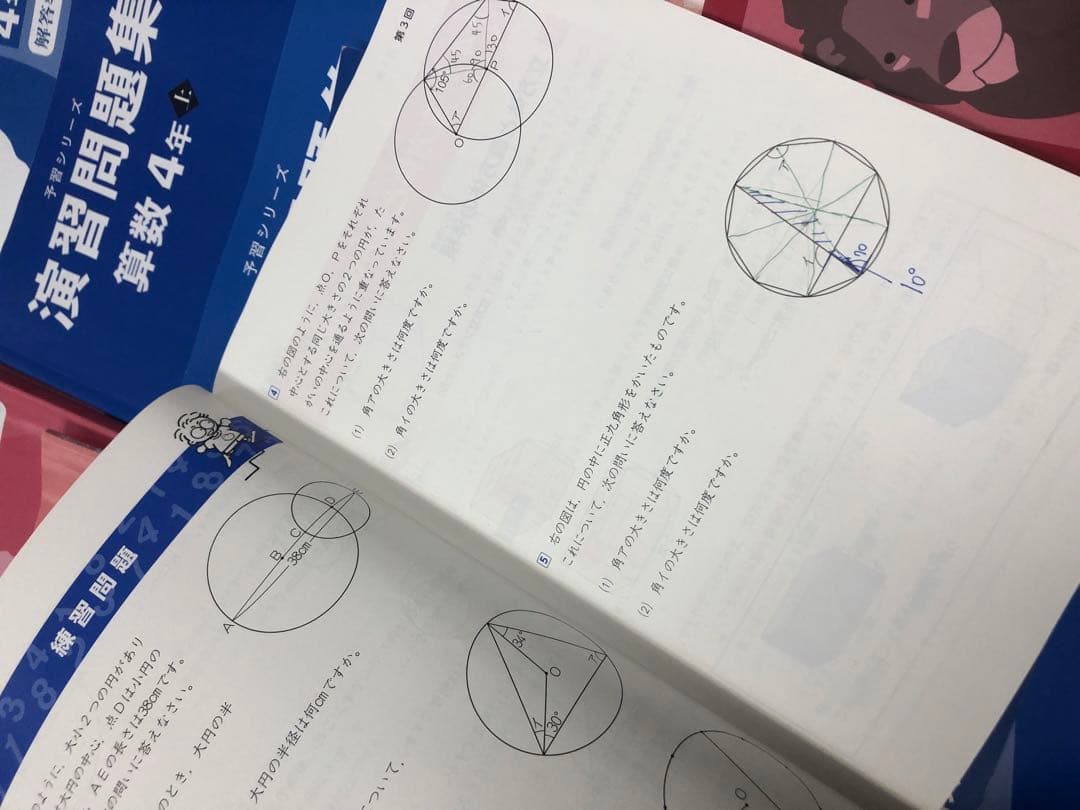 解答
予習シリーズ
演習問題集
算数4年上
予習シリーズ
第3回
45
45
105°
60
90
30
P
イ
ア
O
4 右の図のように，点O，Pをそれぞれ
中心とする同じ大きさの2つの円が，た
がいの中心を通るように重なっています。
これについて，次の問いに答えなさい。
(1) 角アの大きさは何度ですか。
(2) 角イの大きさは何度ですか。
ア
イ
70
10°
5 右の図は，円の中に正九角形をかいたものです。
これについて，次の問いに答えなさい。
(1) 角アの大きさは何度ですか。
(2) 角イの大きさは何度ですか。
練習問題
A
B
C
D
38cm
ように，大小2つの円があり
大円の中心，点Dは小円の
AEの長さは38cmです。
の問いに答えなさい。
のとき，大円の半
大円の半径は何cmですか。
について，
34°
O
ア
イ
30°
O